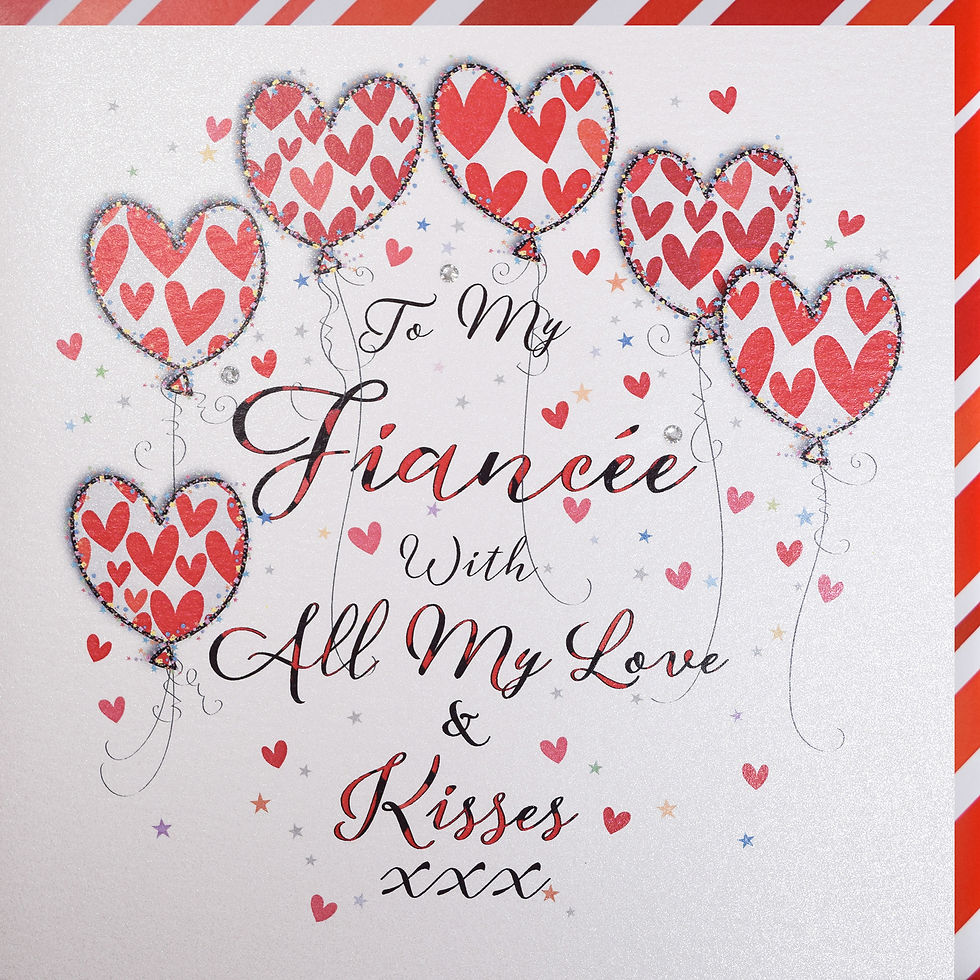 To My
Fiancée
With
All My Love
&
Kisses
xxx